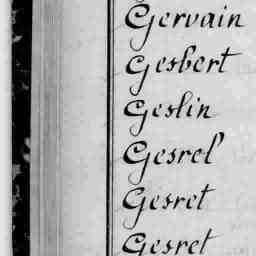 Gervain
Gesbert
Geslin
Gesrel
Gesret
Gesret